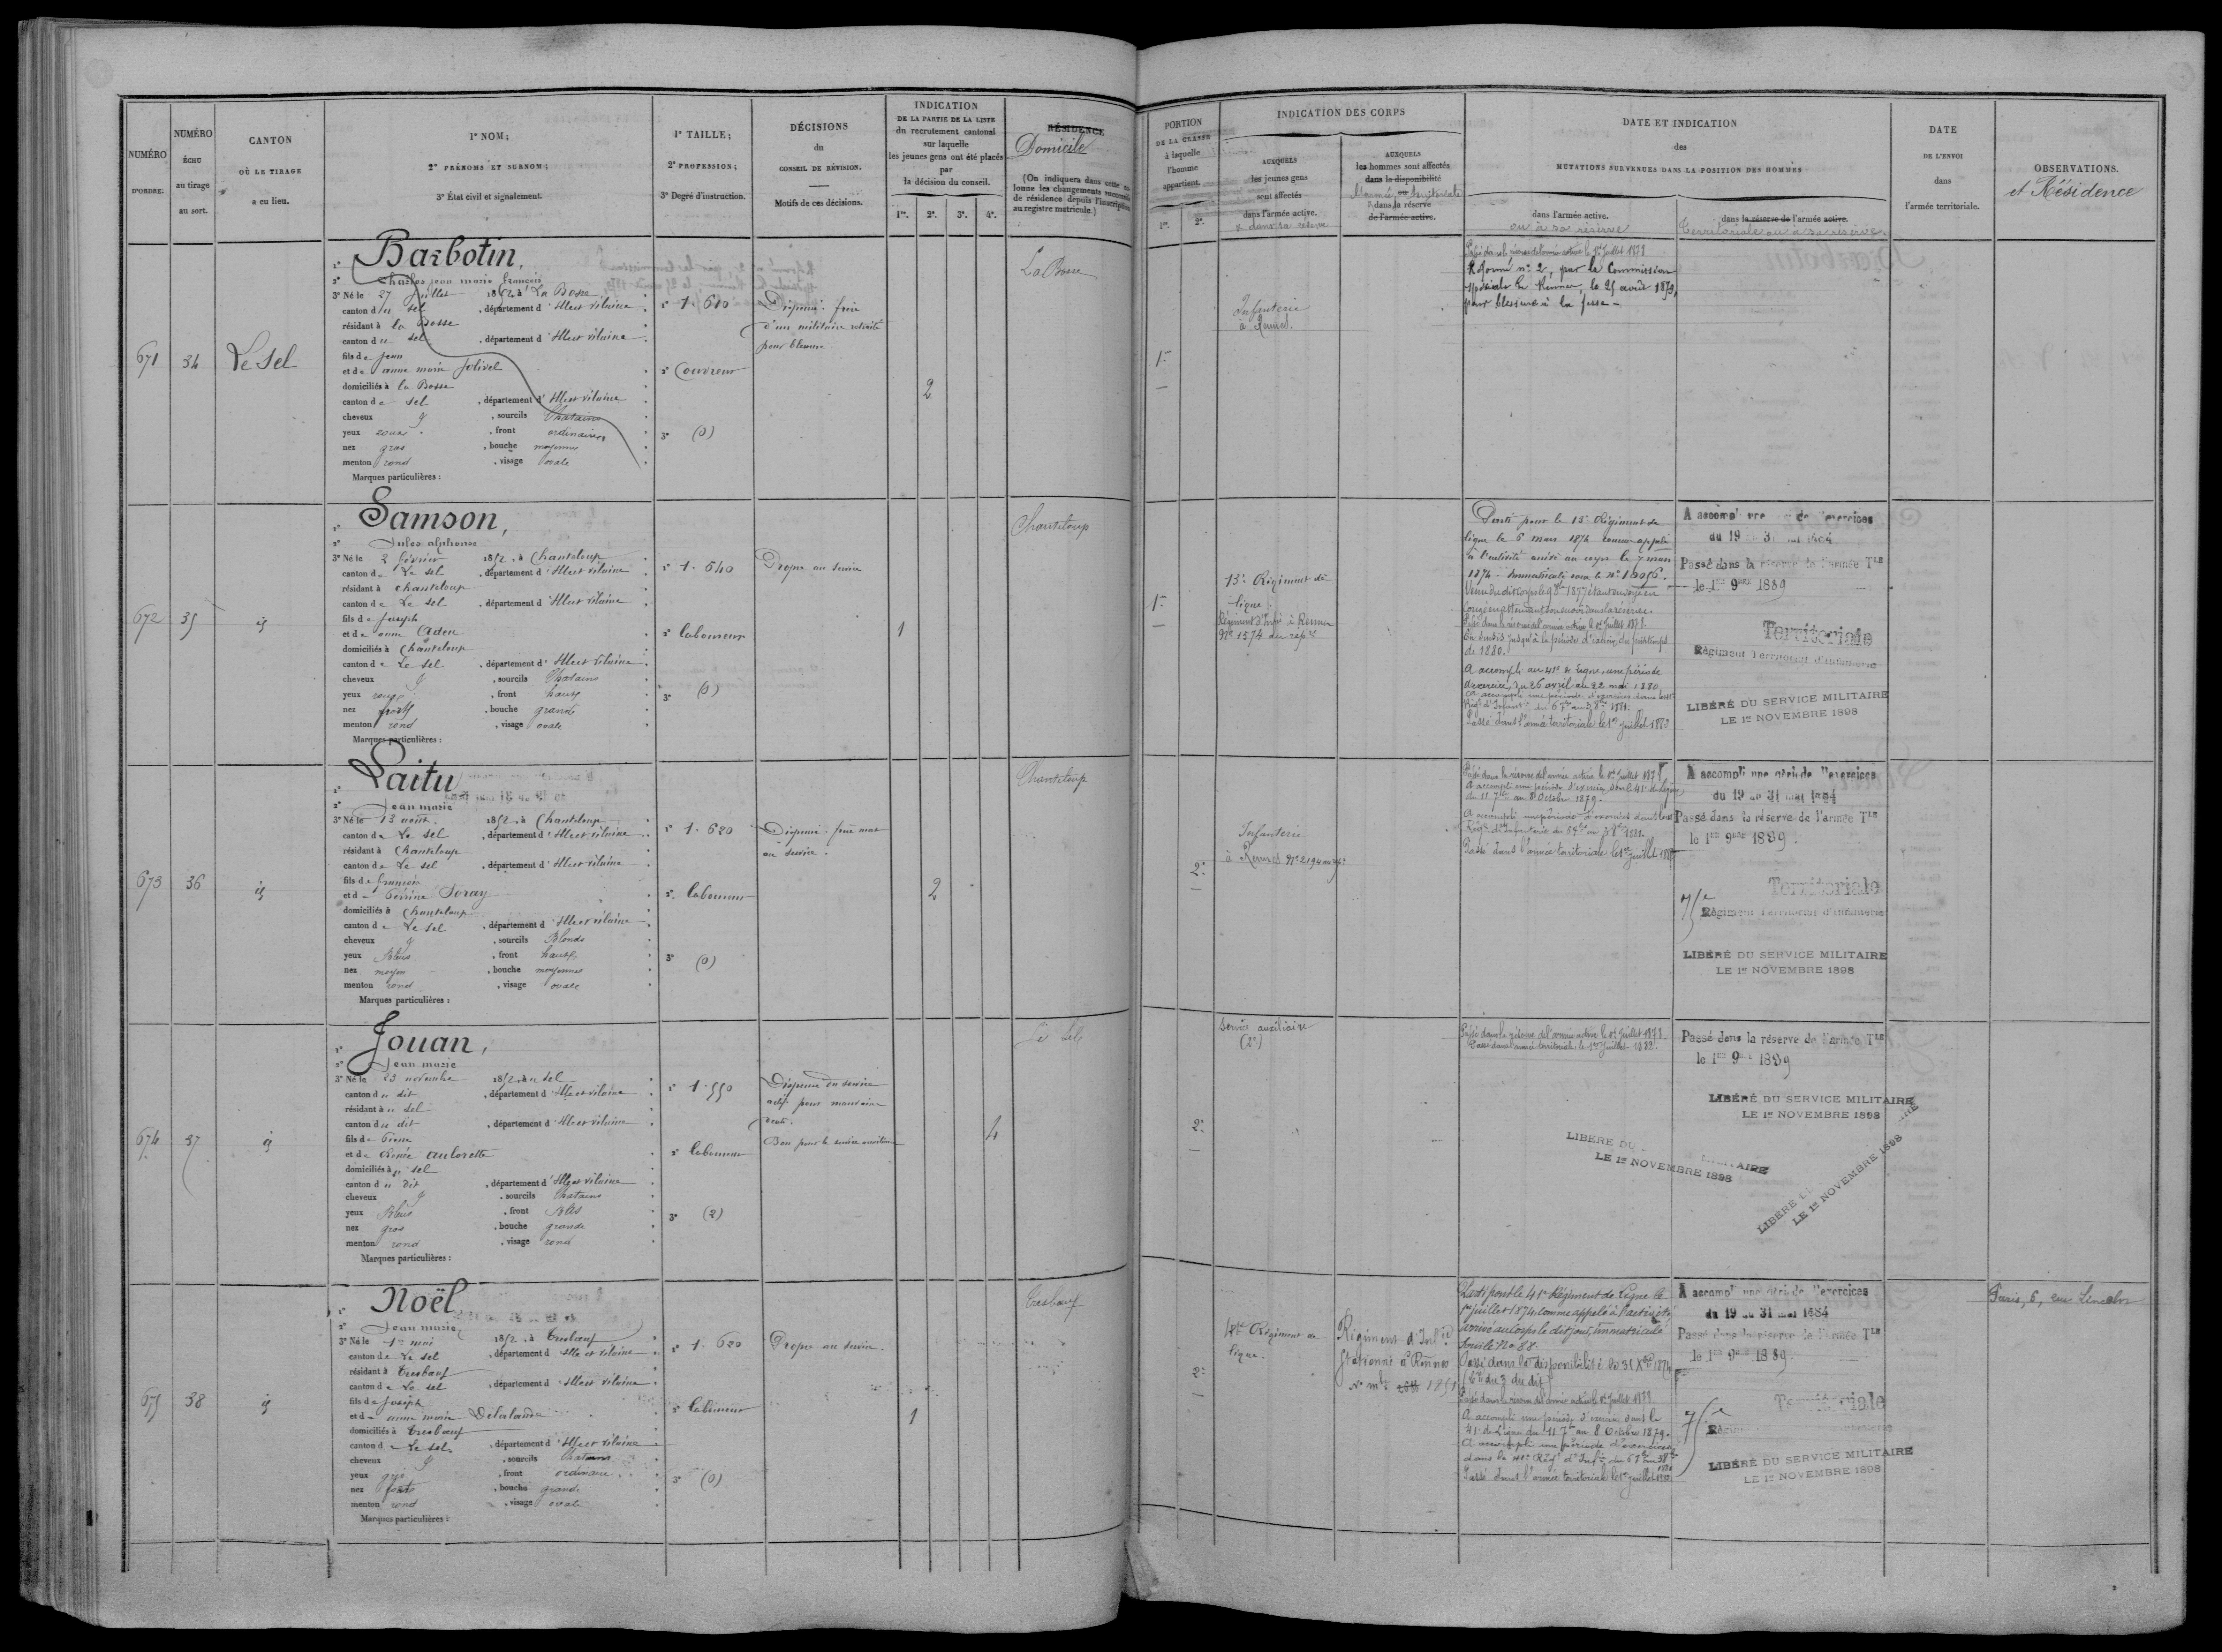 NUMÉRO
D'ORDRE.
NUMÉRO
ÉCHU
au tirage
au sort.
CANTON
OÙ LE TIRAGE
a eu lieu.
1° NOM;
2° PRÉNOMS ET SURNOM;
3° État civil et signalement.
1° TAILLE;
2° PROFESSION;
3° Degré d'instruction.
DÉCISIONS
du
CONSEIL DE RÉVISION.
Motifs de ces décisions.
INDICATION
DE LA PARTIE DE LA LISTE
du recrutement cantonal
sur laquelle
les jeunes gens ont été placés
par
la décision du conseil.
1re. 2e. 3e. 4e.
RÉSIDENCE
Domicile
(On indiquera dans cette co-
lonne les changements successifs
de résidence depuis l'inscription
au registre matricule.)
PORTION
DE LA CLASSE
à laquelle
l'homme
appartient.
1re. 2e.
INDICATION DES CORPS
AUXQUELS
les jeunes gens
sont affectés
dans l'armée active.
& dans sa réserve
AUXQUELS
les hommes sont affectés
dans la disponibilité
ou
dans la réserve
de l'armée active.
DATE ET INDICATION
des
MUTATIONS SURVENUES DANS LA POSITION DES HOMMES
dans l'armée active.
ou à sa réserve
dans la réserve de l'armée active.
Territoriale ou à sa réserve
DATE
DE L'ENVOI
dans
l'armée territoriale.
OBSERVATIONS.
et Résidence
671
34
Le Sel
1° Barbotin,
2° Charles jean marie françois
3° Né le 27 juillet 1852, à La Bosse
canton du sel, département d'Ille et Vilaine
résidant à la Bosse
canton du sel, département d'Ille et Vilaine
fils de jean
et de anne marie Jolivel
domiciliés à la Bosse
canton de sel, département d'Ille et Vilaine
cheveux & sourcils Chatains
yeux roux, front ordinaire
nez gros, bouche moyenne
menton rond, visage ovale
Marques particulières :
1° 1.610
2° Couvreur
3° (0)
Dispensé frère
d'un militaire retraité
pour blessure.
2
La Bosse
1re
Infanterie
à Rennes.
Passé dans la réserve de l'armée active le 1er Juillet 1878
Réformé n° 2, par la Commission
spéciale de Rennes, le 25 août 1879,
pour blessure à la fesse -
672
35
id
1° Samson,
2° Jules alphonse
3° Né le 2 février 1852, à Chanteloup
canton de Le sel, département d'Ille et Vilaine
résidant à Chanteloup
canton de Le sel, département d'Ille et Vilaine
fils de joseph
et de anne Aden
domiciliés à Chanteloup
canton de Le sel, département d'Ille et Vilaine
cheveux & sourcils Chatains
yeux roux, front haut
nez fort, bouche grande
menton rond, visage ovale
Marques particulières :
1° 1.640
2° laboureur
3° (0)
Propre au service
1
Chanteloup
1re
13e Régiment de
ligne.
Régiment d'Infie à Rennes
N° 1574 du rép.
Parti pour le 13e Régiment de
ligne le 6 mars 1874 comme appelé
à l'activité arrivé au corps le 7 mars
1874 - Immatriculé sous le N°
congé en attendant son envoi dans la réserve.
Passé dans la réserve de l'armée active le 1er Juillet 1878
En sursis jusqu'à la période d'exercice du printemps
de 1880.
A accompli au 41e de ligne une période
d'exercice du 26 avril au 22 mai 1880
Passé dans l'armée territoriale le 1er juillet 1882
A accompli une période d'exercices
du 19 au 31 mai 1884
Passé dans la réserve de l'armée Tle
le 1er 9bre 1889
Territoriale
Régiment Territorial d'Infanterie
LIBÉRÉ DU SERVICE MILITAIRE
LE 1er NOVEMBRE 1898
673
36
id
1° Laitu
2° Jean marie
3° Né le 13 août 1852, à Chanteloup
canton de Le sel, département d'Ille et Vilaine
résidant à Chanteloup
canton de Le sel, département d'Ille et Vilaine
fils de françois
et de Perrine Soray
domiciliés à Chanteloup
canton de Le sel, département d'Ille et Vilaine
cheveux & sourcils Blonds
yeux Bleus, front haut
nez moyen, bouche moyenne
menton rond, visage ovale
Marques particulières :
1° 1.620
2° laboureur
3° (0)
Dispensé frère mort
au service.
2
Chanteloup
2e
Infanterie
à Rennes N° 2194 au rép.
Passé dans la réserve de l'armée active le 1er Juillet 1878
A accompli une période d'exercice dans le 41e de ligne
du 11 7bre au 8 Octobre 1879.
Passé dans l'armée territoriale le 1er juillet 1882
A accompli une période d'exercices
du 19 au 31 mai 1884
Passé dans la réserve de l'armée Tle
le 1er 9bre 1889.
Territoriale
75e
Régiment Territorial d'Infanterie
LIBÉRÉ DU SERVICE MILITAIRE
LE 1er NOVEMBRE 1898
674
37
id
1° Jouan,
2° Jean marie
3° Né le 23 novembre 1852, au sel
canton du dit, département d'Ille et Vilaine
résidant au sel
canton du dit, département d'Ille et Vilaine
fils de Pierre
et de Renée aulorette
domiciliés au sel
canton du dit, département d'Ille et Vilaine
cheveux & sourcils Chatains
yeux Bleus, front Bas
nez gros, bouche grande
menton rond, visage rond
Marques particulières :
1° 1.550
2° laboureur
3° (2)
Dispensé du service
actif pour mauvaise
denti.
Bon pour le service auxiliaire
4
Le Sel
2e
Service auxiliaire
(2e)
Passé dans la réserve de l'armée active le 1er Juillet 1878
Passé dans l'armée territoriale le 1er Juillet 1882.
Passé dans la réserve de l'armée Tle
le 1er 9bre 1889
LIBÉRÉ DU SERVICE MILITAIRE
LE 1er NOVEMBRE 1898
LIBÉRÉ DU MILITAIRE
LE 1er NOVEMBRE 1898
LIBÉRÉ
LE 1er NOVEMBRE 1898
675
38
id
1° Noël
2° Jean marie
3° Né le 1er mai 1852, à Tresbœuf
canton de Le sel, département d'Ille et Vilaine
résidant à Tresbœuf
canton de Le sel, département d'Ille et Vilaine
fils de joseph
et de anne marie Delalande
domiciliés à Tresbœuf
canton de Le sel, département d'Ille et Vilaine
cheveux & sourcils Chatains
yeux gris, front ordinaire
nez fort, bouche grande
menton rond, visage ovale
Marques particulières :
1° 1.620
2° laboureur
3° (0)
Propre au service.
1
Tresbœuf
2e
41e Régiment de
ligne.
Régiment d'Infie
Stationné à Rennes
N° mle 1851
Parti pour le 41e Régiment de Ligne le
1er juillet 1874, comme appelé à l'activité,
arrivé au corps le dit jour, immatriculé
sous le No 88.
Passé dans la disponibilité le 31 Xbre 1874
Passé dans la réserve de l'armée active le 1er Juillet 1878
A accompli une période d'exercice dans le
41e de Ligne du 11 7bre au 8 Octobre 1879.
A accompli une période d'exercices
Passé dans l'armée territoriale le 1er juillet 1882
A accompli une période d'exercices
du 19 au 31 mai 1884
Passé dans la réserve de l'armée Tle
le 1er 9bre 1889.
Territoriale
75e
LIBÉRÉ DU SERVICE MILITAIRE
LE 1er NOVEMBRE 1898
Paris, 6, rue Lincoln